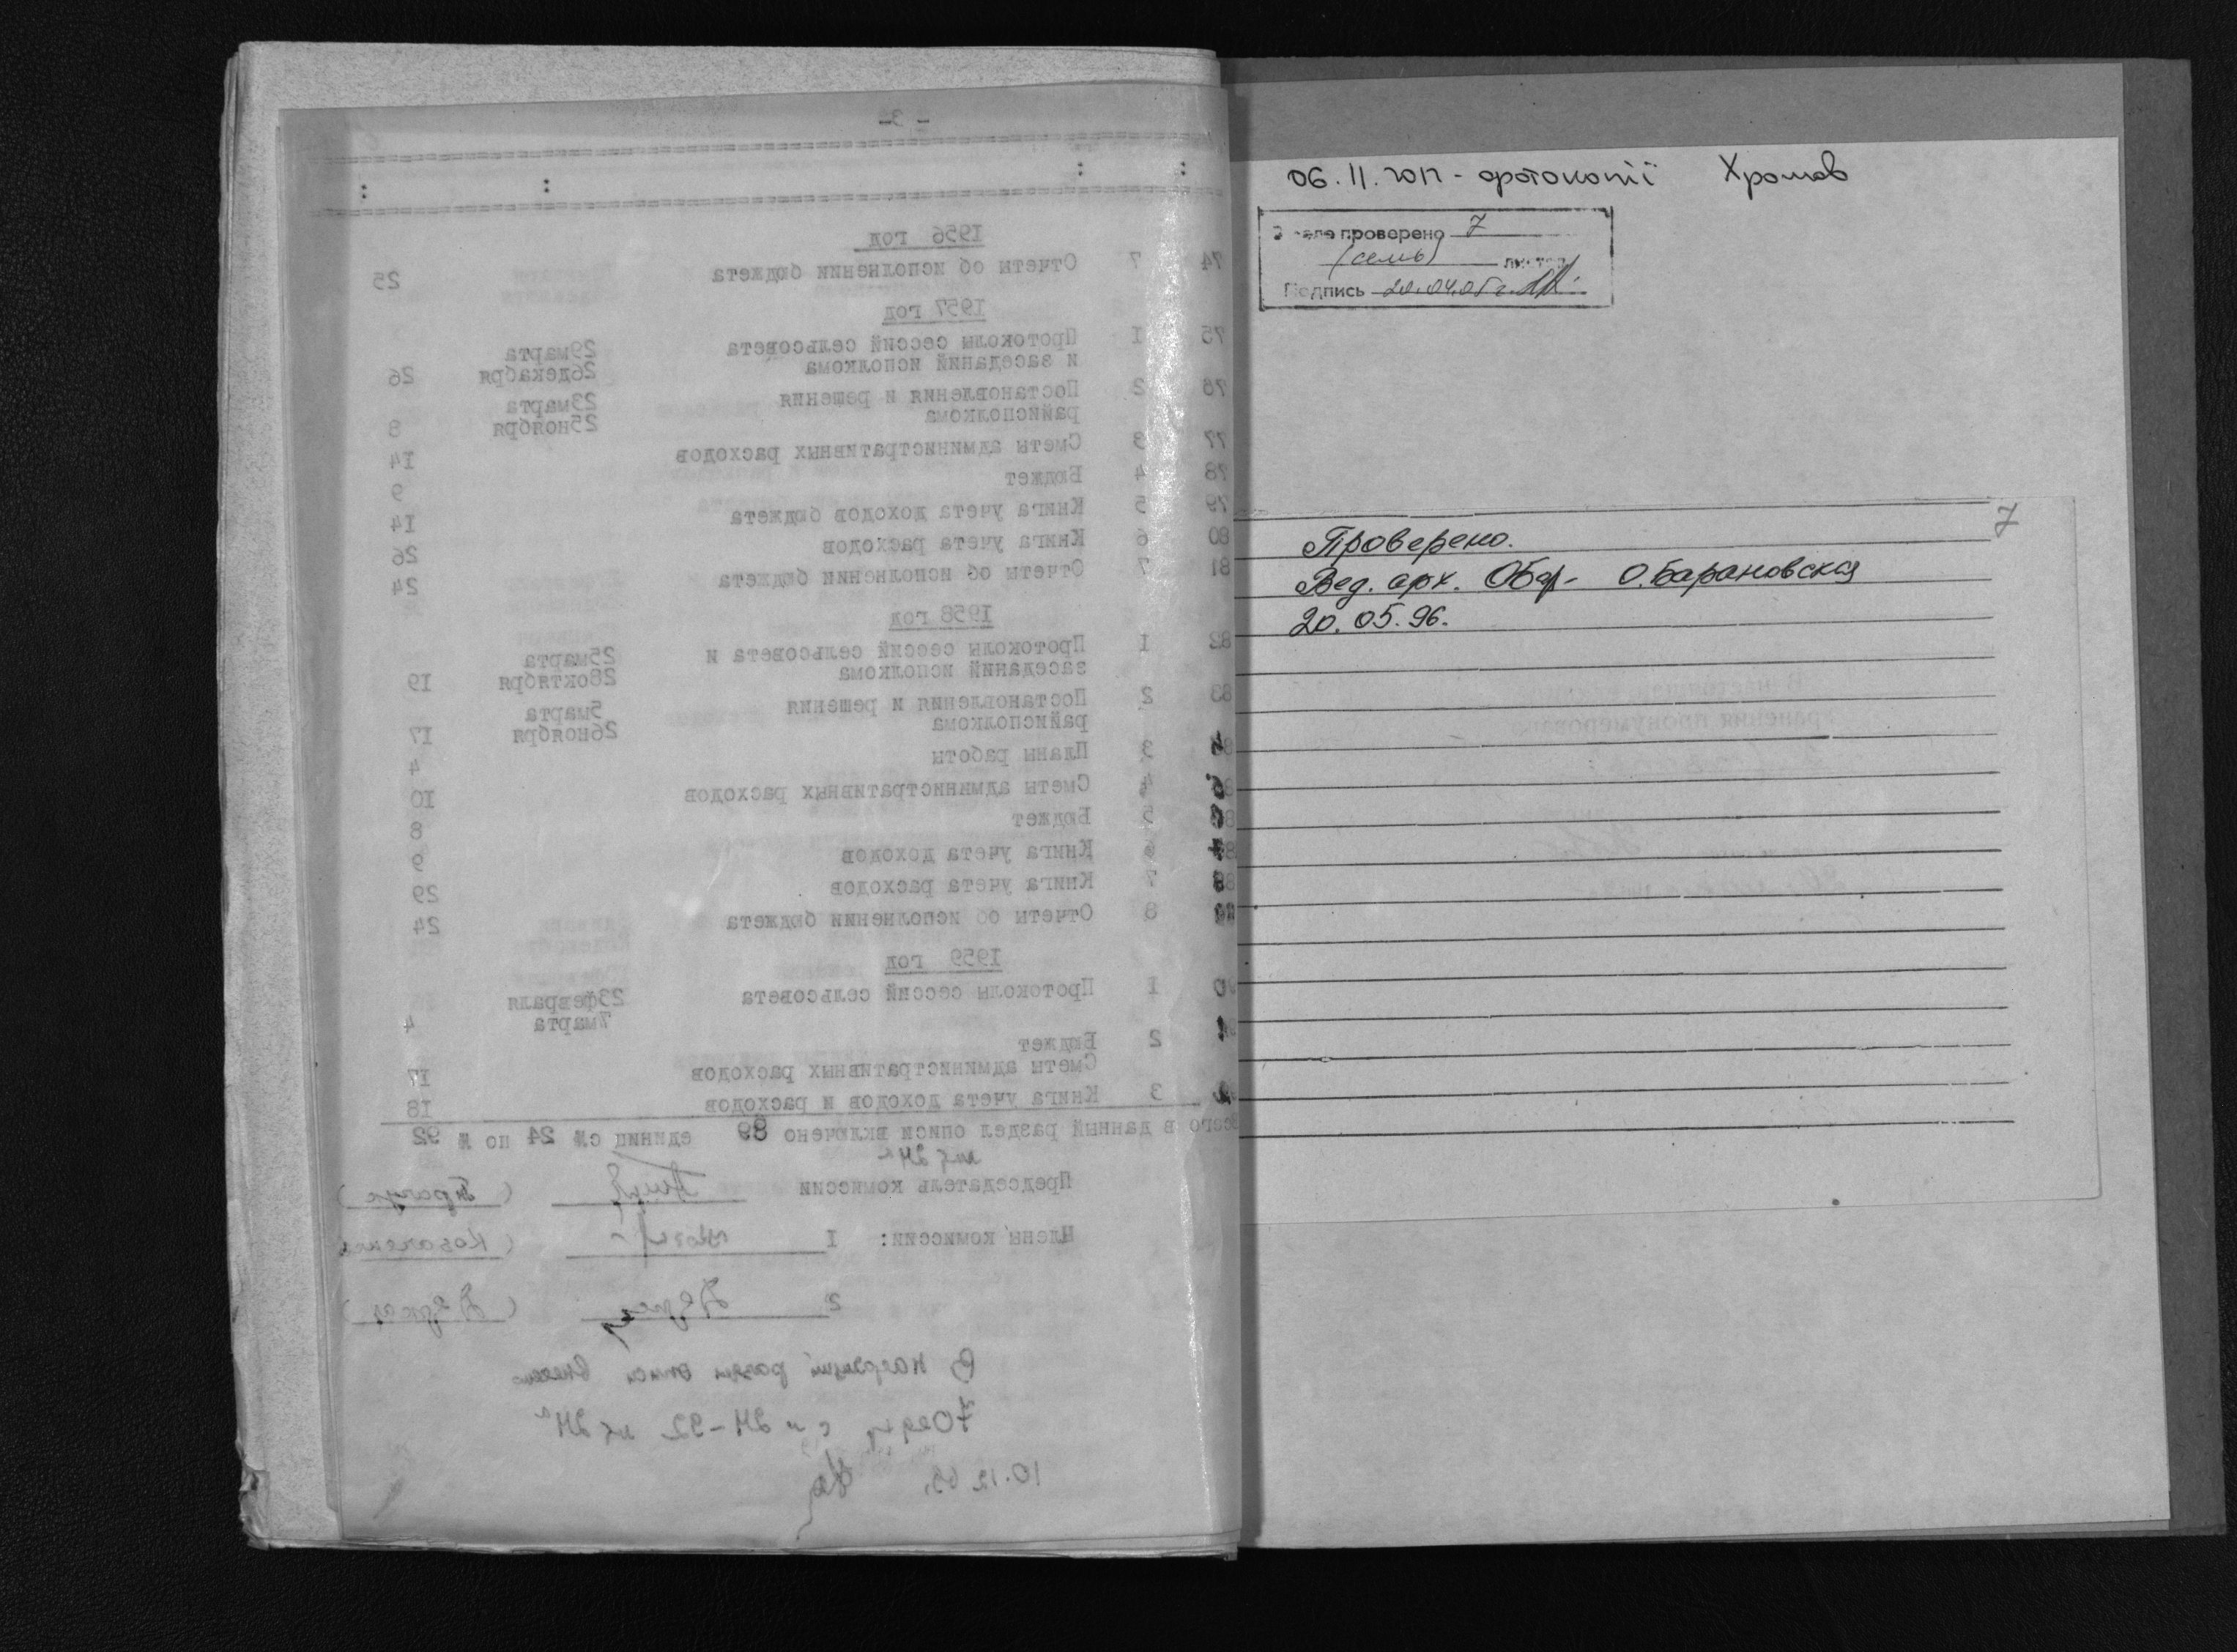 - 3 -
1956 год
74 7 Отчеты об исполнении бюджета 25
1957 год
75 1 Протоколы сессий сельсовета 29марта
и заседаний исполкома 26декабря 26
76 2 Постановления и решения 23марта
райисполкома 25ноября 8
77 3 Сметы административных расходов 14
78 4 Бюджет 9
79 5 Книга учета доходов бюджета 14
80 6 Книга учета расходов 26
81 7 Отчеты об исполнении бюджета 24
1958 год
82 1 Протоколы сессий сельсовета и 25марта
заседаний исполкома 28октября 19
83 2 Постановления и решения 5марта
райисполкома 26ноября 17
84 3 Планы работы 4
4 Сметы административных расходов 10
5 Бюджет 8
6 Книга учета доходов 9
88 7 Книга учета расходов 29
8 Отчеты об исполнении бюджета 24
1959 год
1 Протоколы сессий сельсовета 23февраля
7марта 4
2 Бюджет
Сметы административных расходов 17
3 Книга учета доходов и расходов 18
Всего в данный раздел описи включено 89 единиц с№ 24 по № 92
Председатель комиссии
Члены комиссии: 1
2
10.12.65.
06.11.2017 - фотокопії Хромов
В деле проверено 7
(семь) листов
Подпись 20.04.05 г.
7
Проверено.
Вед. арх. О.Барановская
20.05.96.